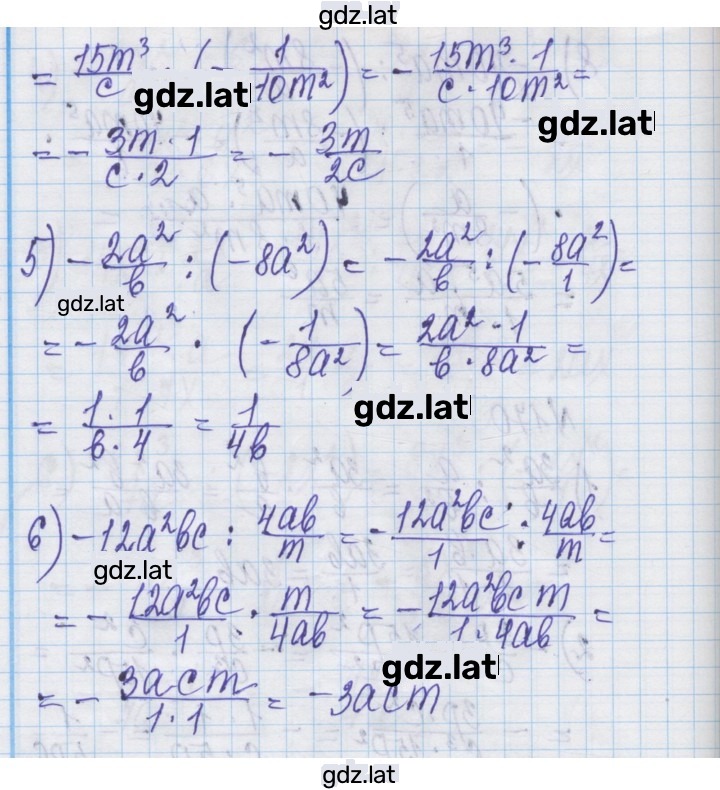 gdz.lat
= 15m³/c · (- 1/10m²) = - 15m³ · 1/c · 10m² =
gdz.lat
gdz.lat
= - 3m · 1/c · 2 = - 3m/2c
5) - 2a²/в : (-8a²) = - 2a²/в : (- 8a²/1) =
gdz.lat
= - 2a²/в · (- 1/8a²) = 2a² · 1/в · 8a² =
gdz.lat
= 1 · 1/в · 4 = 1/4в
6) -12a²вc : 4aв/m = - 12a²вc/1 : 4aв/m =
gdz.lat
= - 12a²вc/1 · m/4aв = - 12a²вc m/1 · 4aв =
gdz.lat
= - 3acm/1 · 1 = -3acm
gdz.lat